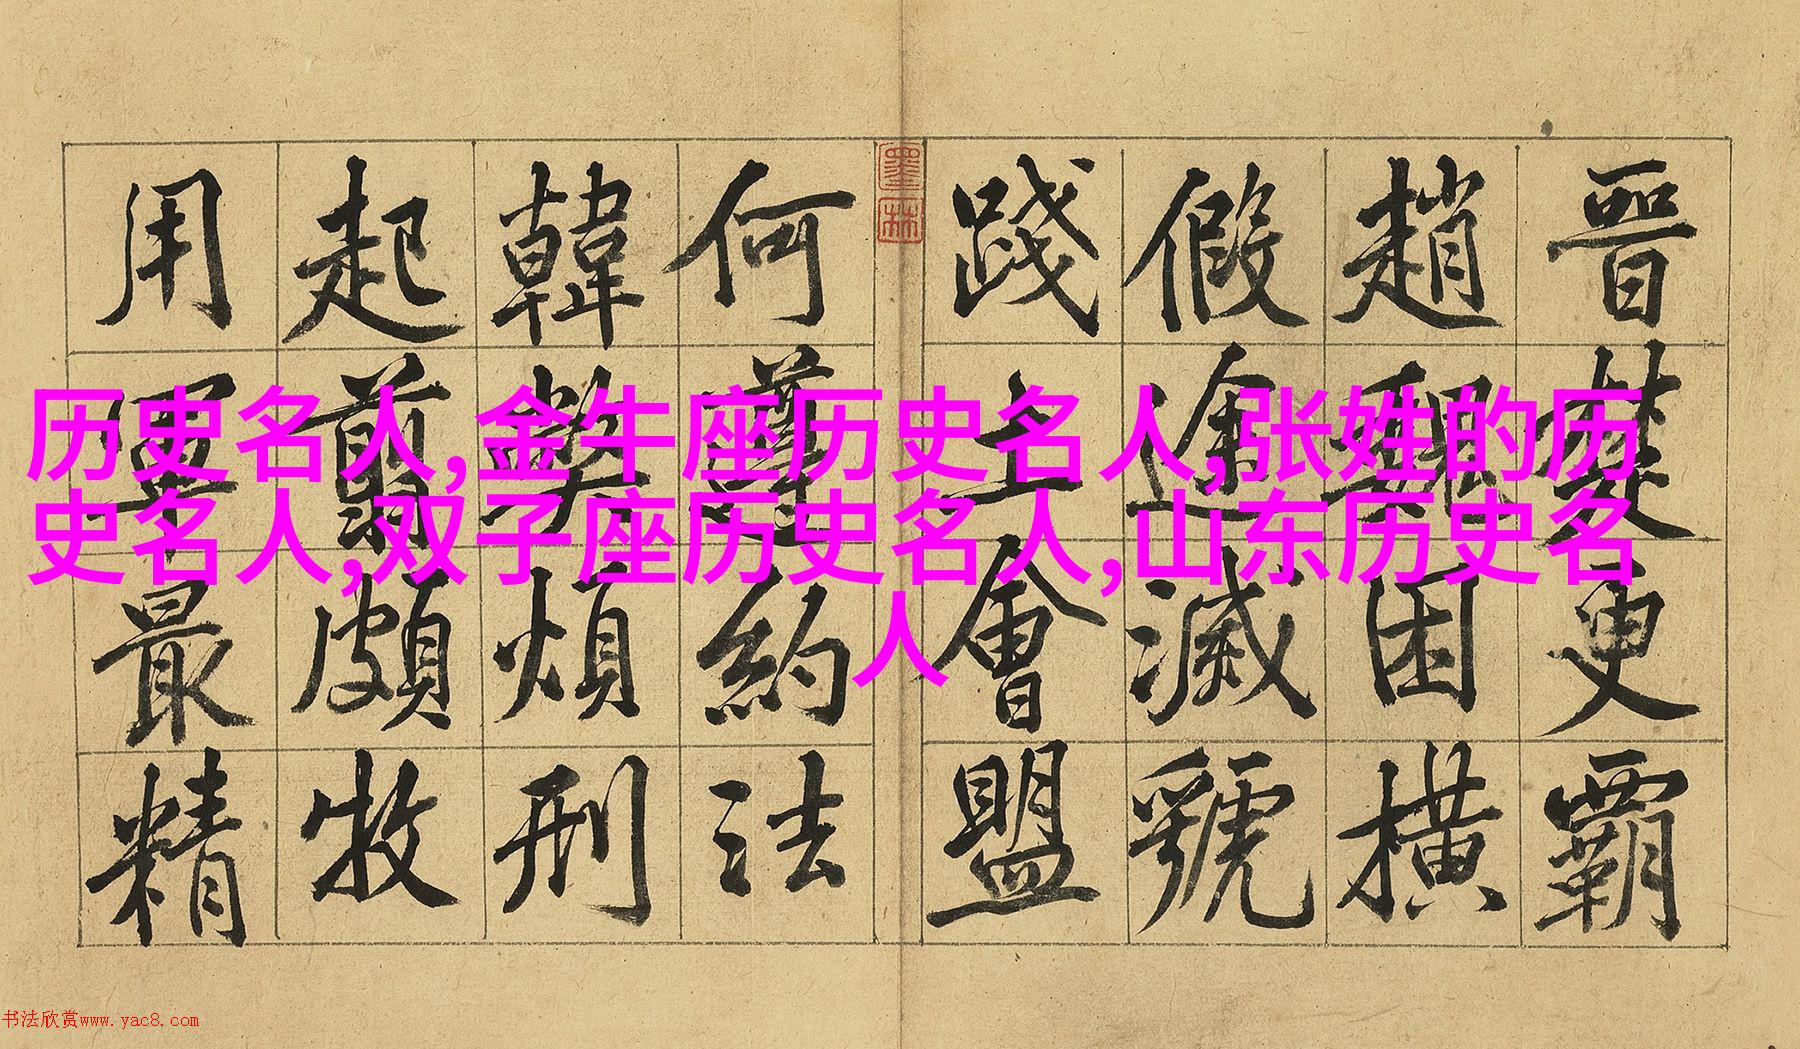 历史名人,金牛座历史名人,张姓的历
史名人,双子座历史名人,山东历史名
人
晉楚更霸
趙魏困横
假途滅虢
踐土會盟
墨林
何遵約法
韓弊煩刑
起翦頗牧
用軍最精
书法欣赏www.yac8.com